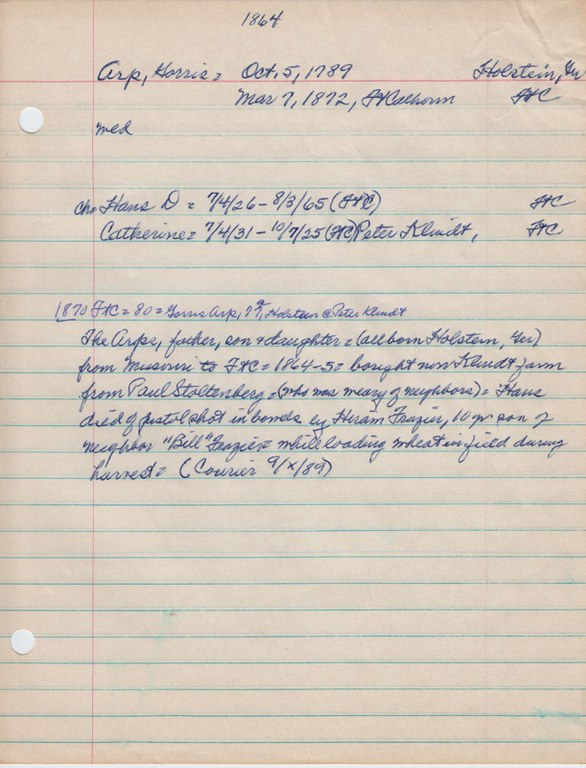 1864
Arp, Gorris = Oct. 5, 1789 Holstein, Ger
Mar 7, 1872, Ft Calhoun FtC
med
ch = Hans D = 7/4/26 - 8/3/65 (FtC) FtC
Catherine = 7/4/31 - 10/7/25 (FtC) Peter Klindt, FtC
1870 FtC = 80 = Gorris Arp, 79, Holstein @ Peter Klindt
The Arps, father, son + daughter = (all born Holstein, Ger)
from Missouri to FtC = 1864-5 = bought now Klindt farm
from Paul Stoltenberg = (who was weary of neighbors) = Hans
died of pistol shot in bowels by Hiram Frazier, 10 yr son of
neighbor "Bill" Frazier = while loading wheat in field during
harvest = (Courier 9/x/89)